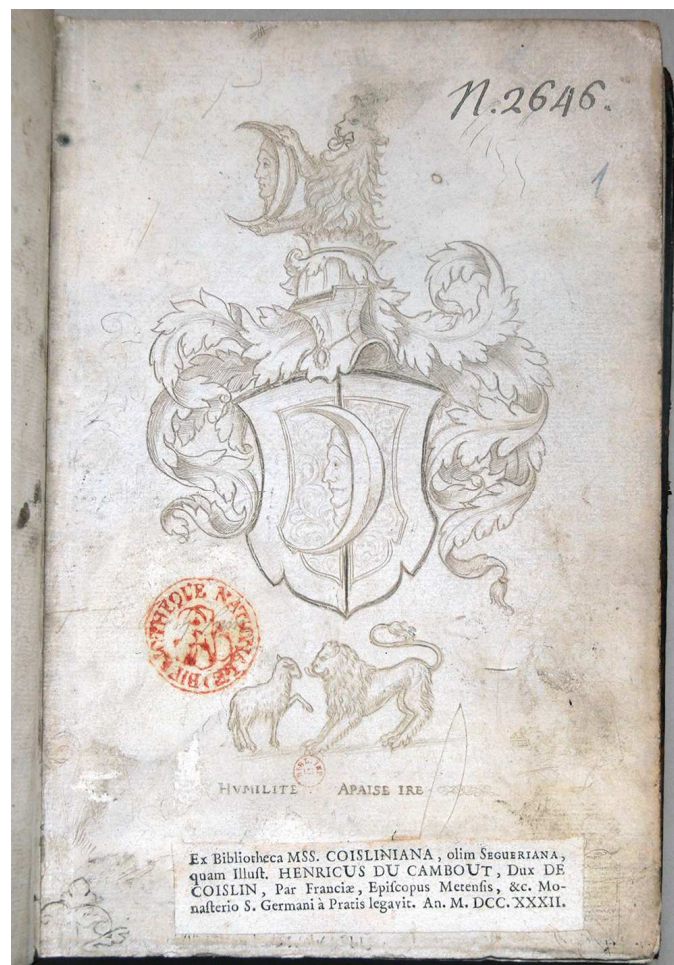 N.2646.
1
BIBLIOTHEQUE NATIONALE
HVMILITE APAISE IRE
Ex Bibliotheca MSS. COISLINIANA, olim SEGUERIANA,
quam Illust. HENRICUS DU CAMBOUT, Dux DE
COISLIN, Par Franciæ, Episcopus Metensis, &c. Mo-
nasterio S. Germani à Pratis legavit. An. M. DCC. XXXII.